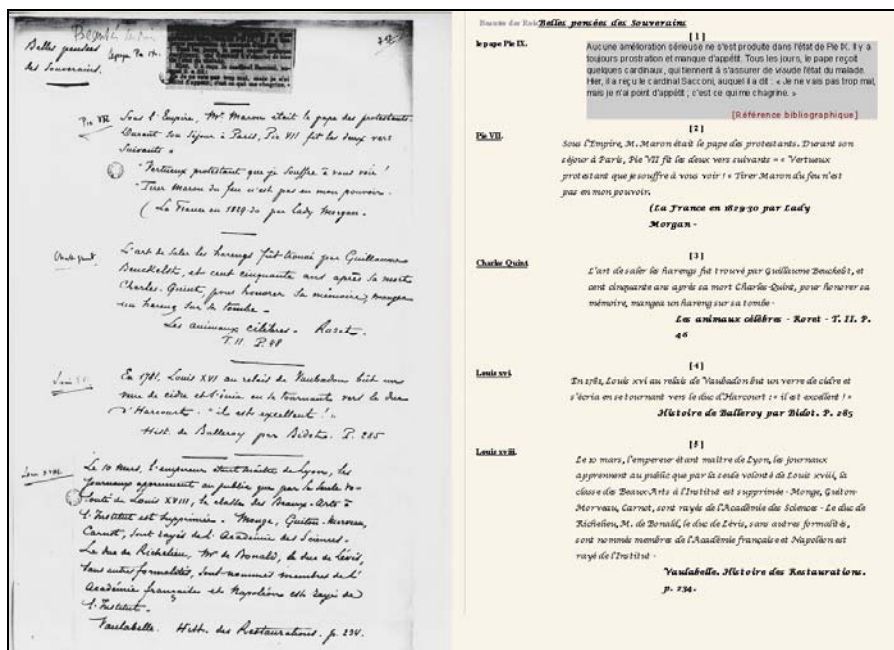 Beauté des Rois
Belles pensées
des Souverains.
le pape Pie IX.
Pie VII.
Sous l'Empire, Mr. Maron était le pape des protestants.
Durant son séjour à Paris, Pie VII fit les deux vers
suivants =
"Vertueux protestant que je souffre à vous voir !
"Tirer Maron du feu n'est pas en mon pouvoir.
( La France en 1829-30 par Lady Morgan.
Charles Quint.
L'art de saler les harengs fût trouvé par Guillaume
Beuckelst, et cent cinquante ans après sa mort
Charles-Quint, pour honorer sa mémoire, mangea
un hareng sur sa tombe -
Les animaux célèbres - Roret -
T. II. P. 48
Louis XVI.
En 1781, Louis XVI au relais de Vaubadon bût un
verre de cidre et s'écria en se tournant vers le duc
d'Harcourt : "il est excellent ! "
Hist. de Balleroy par Bidot. P. 285
Louis XVIII.
Le 10 mars, l'empereur étant maître de Lyon, les
journaux apprennent au public que par la seule vo-
lonté de Louis XVIII, la classe des Beaux-Arts à
l'Institut est supprimée. - Monge, Guiton-Morveau,
Carnot, sont rayés de l'Académie des Sciences -
Le duc de Richelieu, Mr de Bonald, le duc de Lévis,
sans autres formalités, sont nommés membres de l'
Académie française et Napoléon est rayé de
l'Institut -
Vaulabelle. Hist. des Restaurations. p. 234.
Beauté des Rois Belles pensées des Souverains
[1]
le pape Pie IX.
Aucune amélioration sérieuse ne s'est produite dans l'état de Pie IX. Il y a
toujours prostration et manque d'appétit. Tous les jours, le pape reçoit
quelques cardinaux, qui tiennent à s'assurer de visu de l'état du malade.
Hier, il a reçu le cardinal Sacconi, auquel il a dit : « Je ne vais pas trop mal,
mais je n'ai point d'appétit ; c'est ce qui me chagrine. »
[Référence bibliographique]
[2]
Pie VII.
Sous l'Empire, M. Maron était le pape des protestants. Durant son
séjour à Paris, Pie VII fit les deux vers suivants = « Vertueux
protestant que je souffre à vous voir ! « Tirer Maron du feu n'est
pas en mon pouvoir.
(La France en 1829-30 par Lady
Morgan -
[3]
Charles Quint
L'art de saler les harengs fut trouvé par Guillaume Beuckelst, et
cent cinquante ans après sa mort Charles-Quint, pour honorer sa
mémoire, mangea un hareng sur sa tombe -
Les animaux célèbres - Roret - T. II. P.
46
[4]
Louis xvi.
En 1781, Louis xvi au relais de Vaubadon but un verre de cidre et
s'écria en se tournant vers le duc d'Harcourt : « il est excellent ! »
Histoire de Balleroy par Bidot. P. 285
[5]
Louis xviii.
Le 10 mars, l'empereur étant maître de Lyon, les journaux
apprennent au public que par la seule volonté de Louis xviii, la
classe des Beaux Arts à l'Institut est supprimée - Monge, Guiton-
Morveau, Carnot, sont rayés de l'Académie des Sciences - Le duc de
Richelieu, M. de Bonald, le duc de Lévis, sans autres formalités,
sont nommés membres de l'Académie française et Napoléon est
rayé de l'Institut -
Vaulabelle. Histoire des Restaurations.
p. 234-